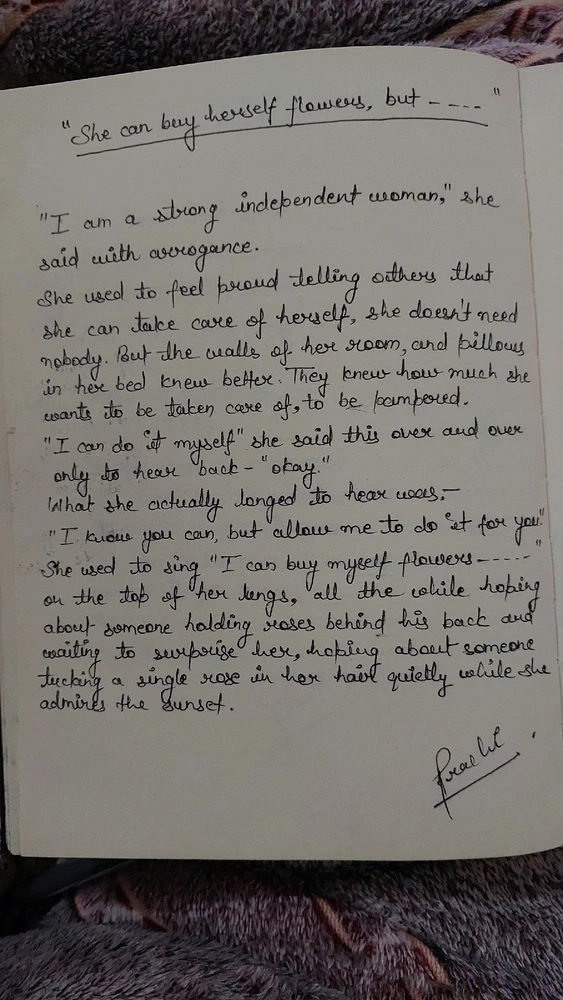 "She can buy herself flowers, but -----"
"I am a strong independent woman," she
said with arrogance.
She used to feel proud telling others that
she can take care of herself, she doesn't need
nobody. But the walls of her room, and pillows
in her bed knew better. They knew how much she
wants to be taken care of, to be pampered.
"I can do it myself" she said this over and over
only to hear back - "okay."
What she actually longed to hear was,-
"I know you can, but allow me to do it for you."
She used to sing "I can buy myself flowers ------"
on the top of her lungs, all the while hoping
about someone holding roses behind his back and
waiting to surprise her, hoping about someone
tucking a single rose in her hair quietly while she
admires the sunset.